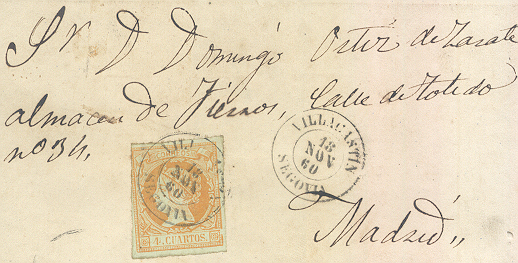 Sr D Domingo Ortiz de Zarate
almacen de Fierros, Calle de Toledo
nº 34,
VILLACASTIN
18
NOV
60
SEGOVIA
VILLACASTIN
18
NOV
60
SEGOVIA
4 CUARTOS.
Madrid,,